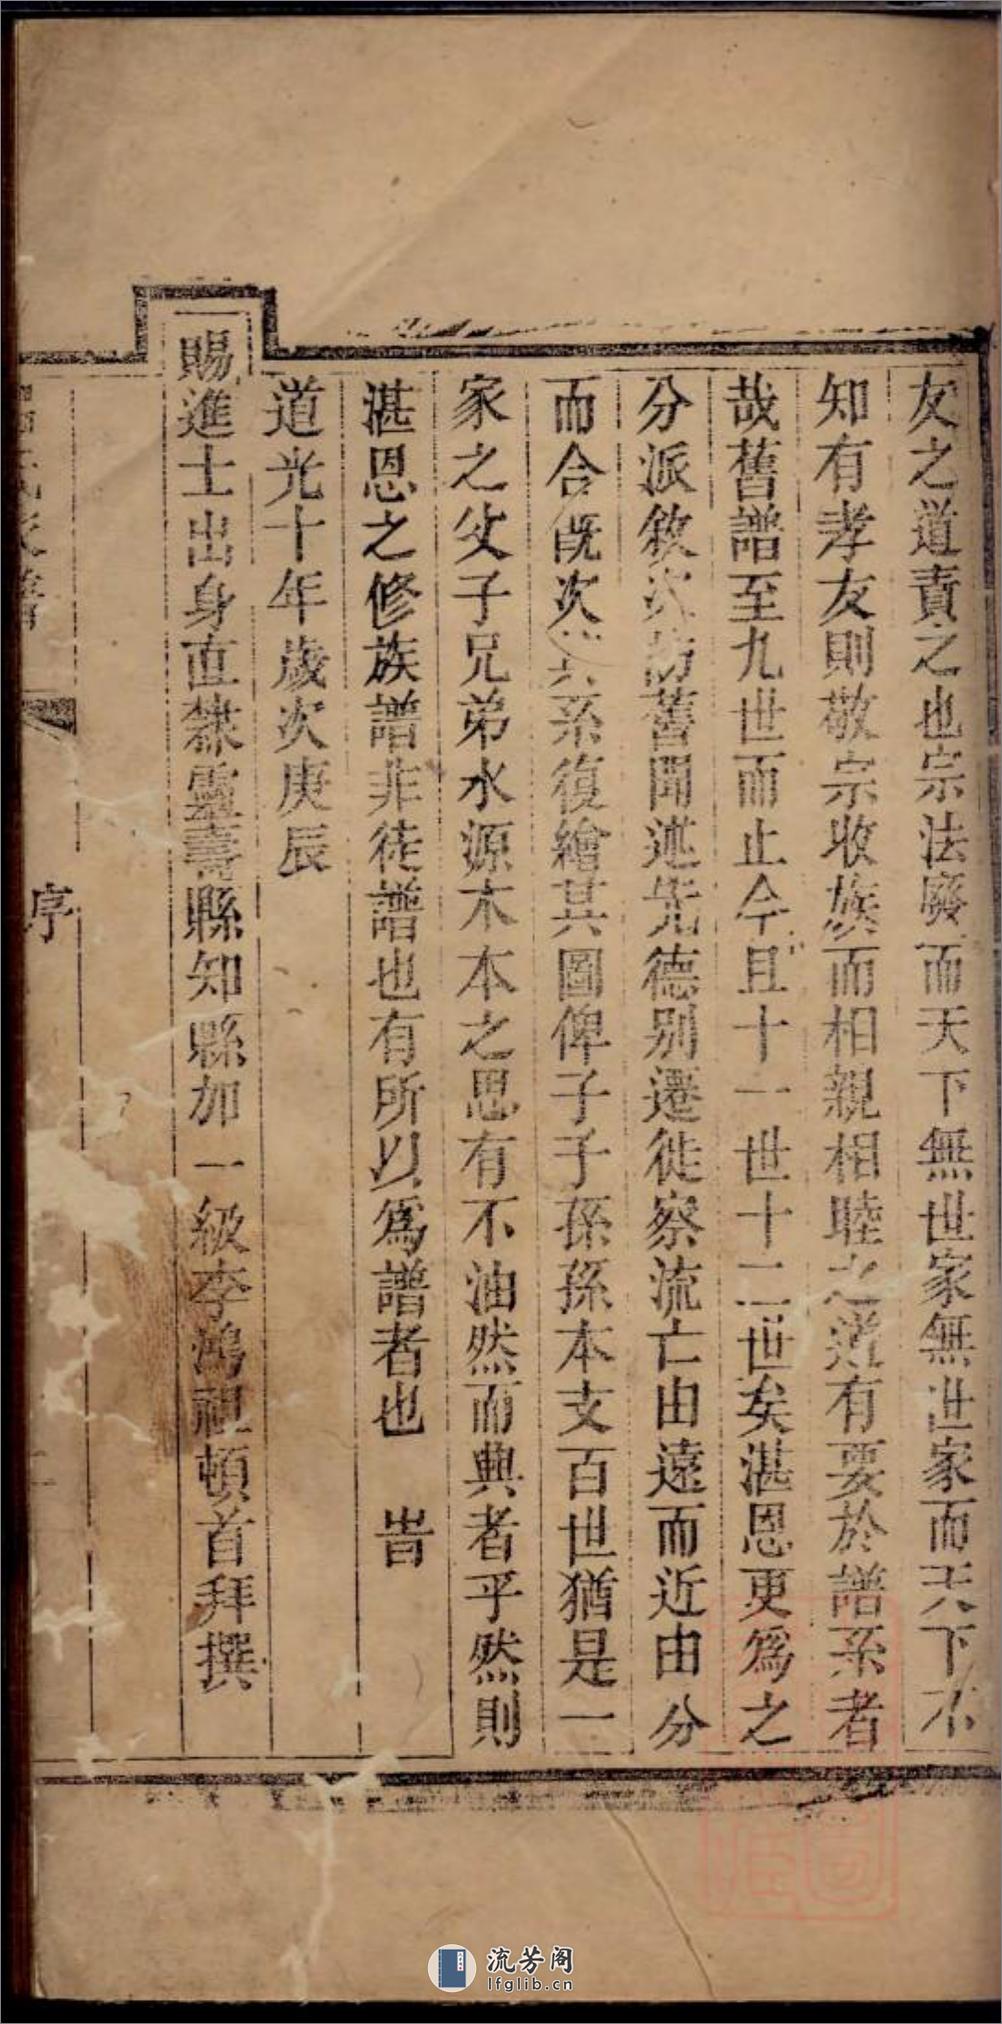 友之道責之也宗法廢而天下無世家無世家而天下不
知有孝友則敬宗收族而相親相睦之道有要於譜系者
哉舊譜至九世而止今且十一世十二世矣湛恩更爲之
分派敘次訪舊聞述先德别遷徙察流亡由遠而近由分
而合既次其系復繪其圖俾子子孫孫本支百世猶是一
家之父子兄弟水源木本之思有不油然而興者乎然則
湛恩之修族譜非徒譜也有所以爲譜者也 旹
道光十年歲次庚辰
賜進士出身直隸靈壽縣知縣加一級李鴻祖頓首拜撰
序
流芳阁
lfglib.cn